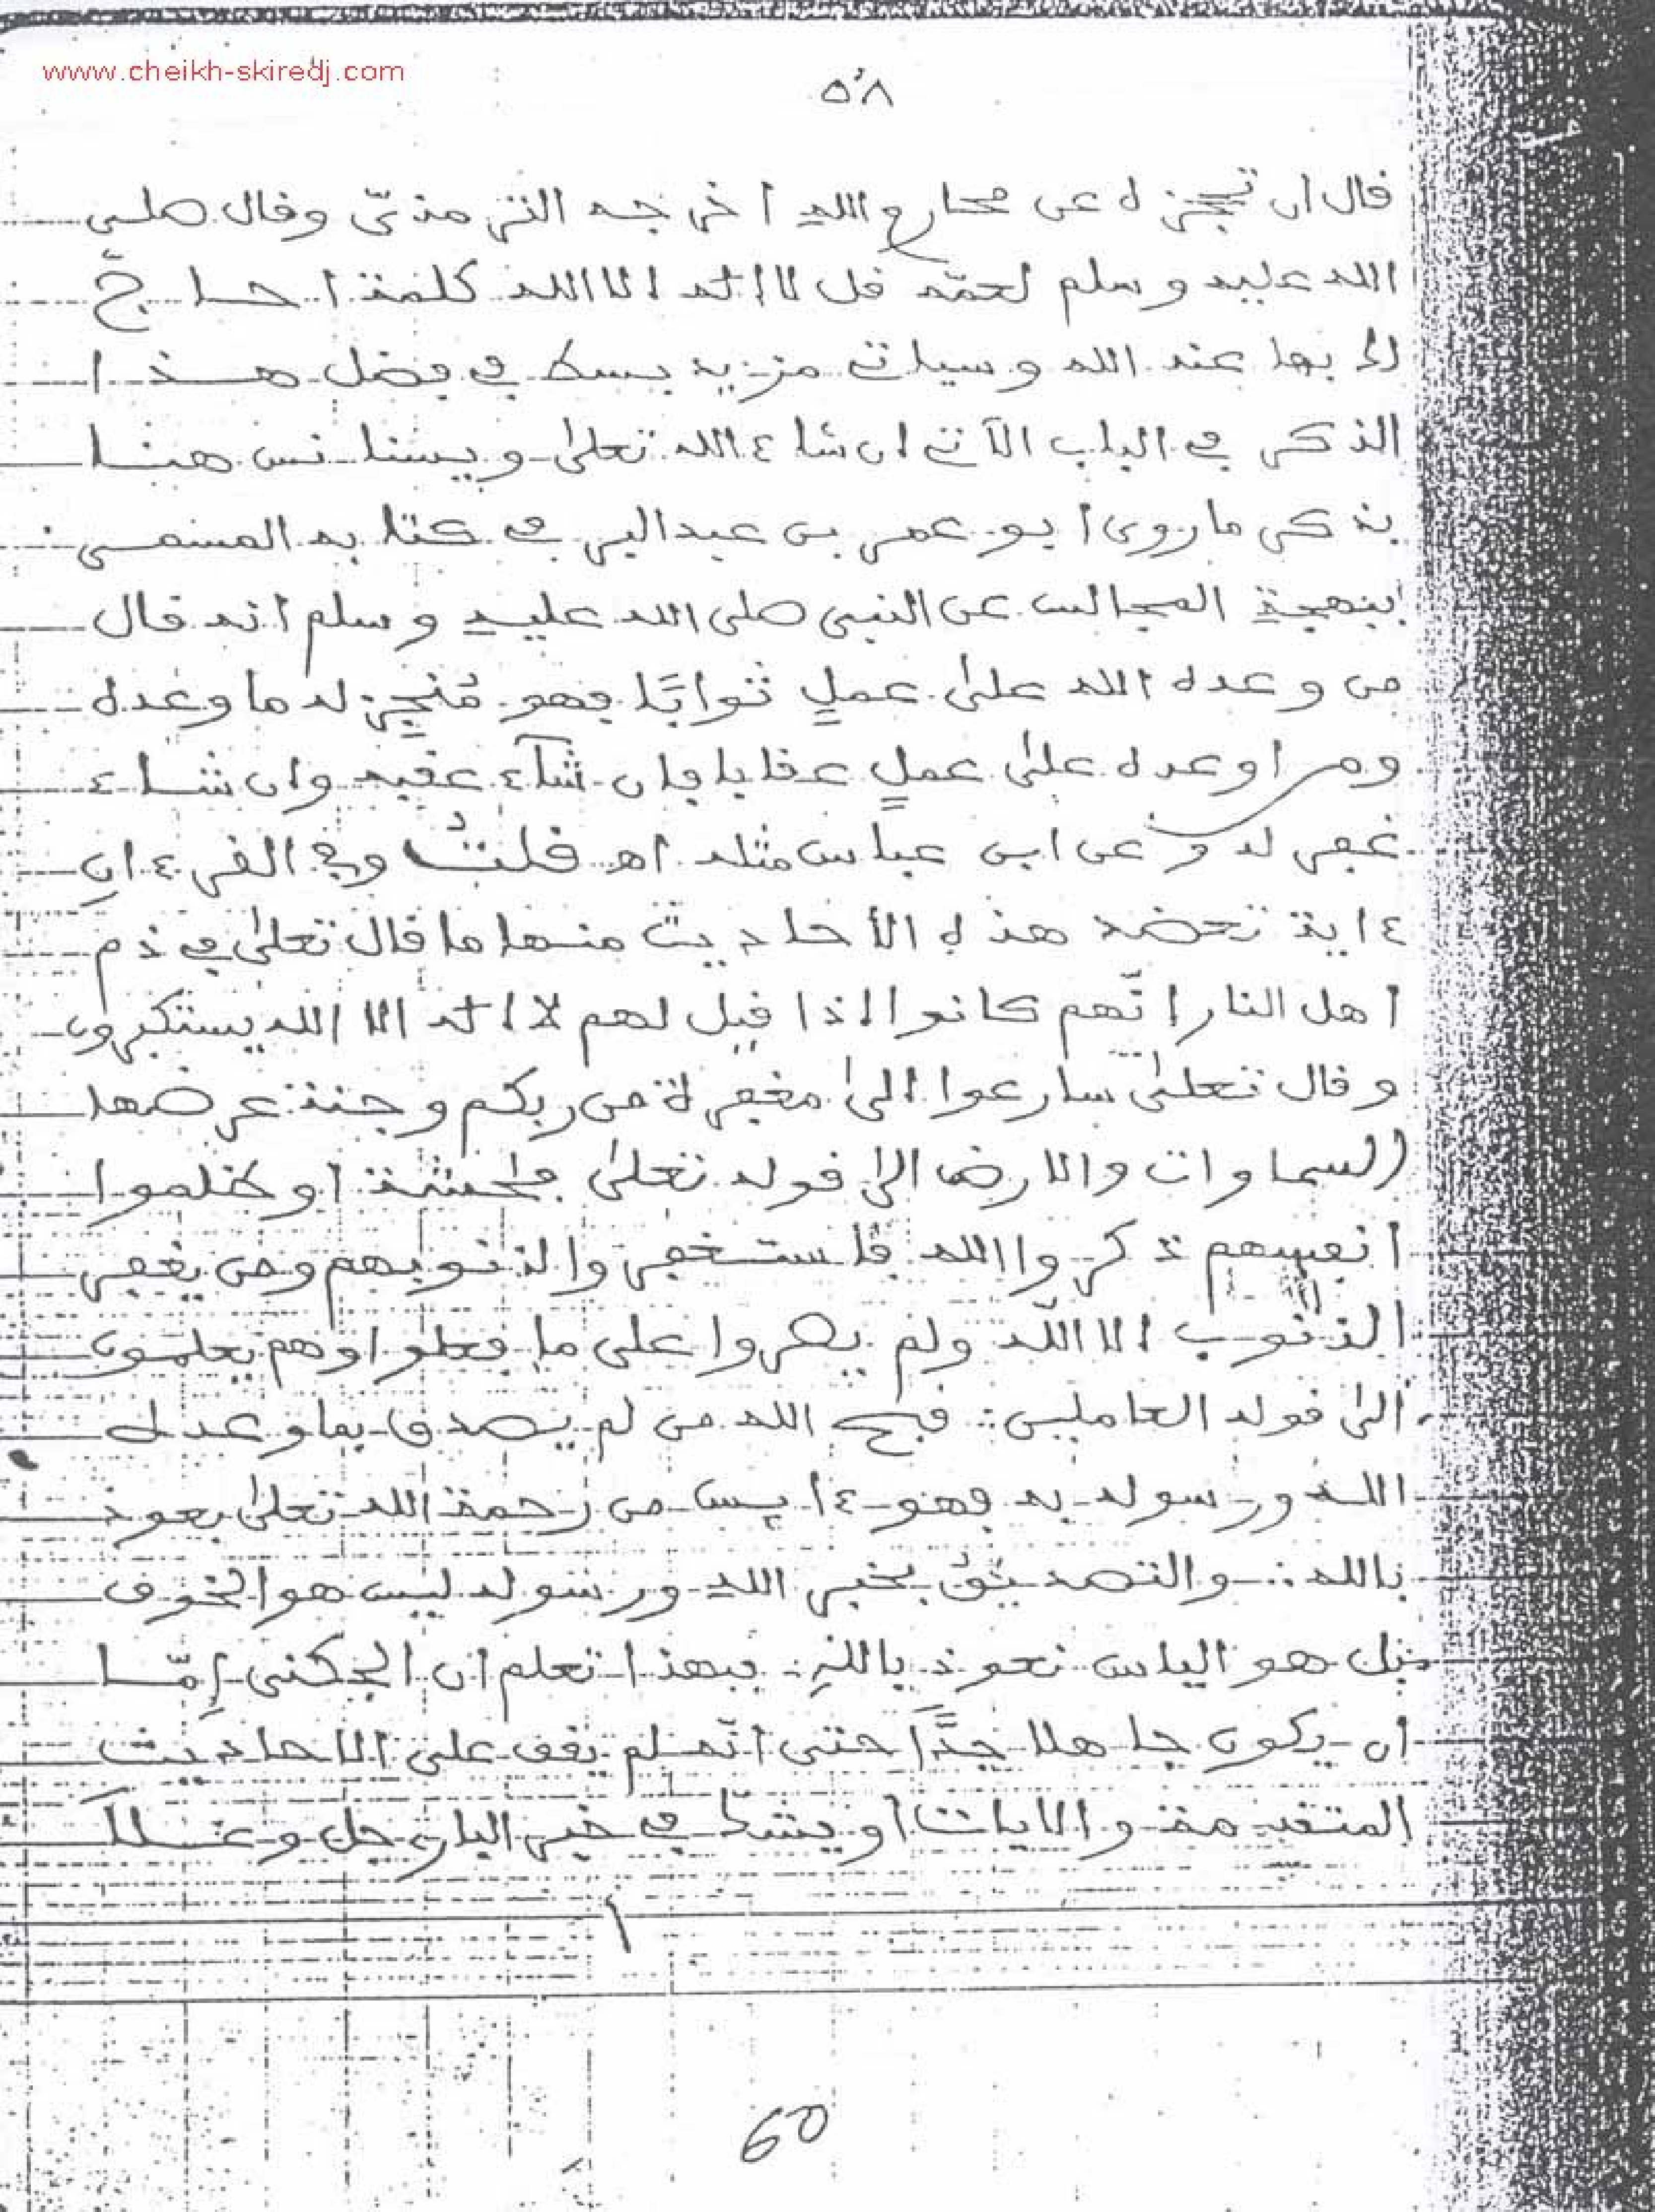 www.cheikh-skiredj.com
٥٨
قال ان تحجزه عن محارم الله اخرجه الترمذيّ وقال صلى
الله عليه وسلم لعمّه قل لا اله الا الله كلمة احاجّ
لك بها عند الله وسياتي مزيد بسط في فضل هذا
الذكر في الباب الآتي ان شاء الله تعلى ويستانس هنا
بذكر ما روى ابو عمر بن عبد البر في كتابه المسمى
ببهجة المجالس عن النبي صلى الله عليه وسلم انه قال
من وعده الله على عملٍ ثوابًا فهو مُنجِزٍ له ما وعده
ومن اوعده على عملٍ عقابا فان شآء عقبه وان شاء
غفر له وعن ابن عباس مثله اهـ قلتُ وفي القرءان
ءاية تعضد هذه الأحاديث منها ما قال تعلى في ذم
اهل النار انّهم كانوا اذا قيل لهم لا اله الا الله يستكبرون
وقال تعلى سارعوا الى مغفرة من ربكم وجنة عرضها
السماوات والارض الى قوله تعلى فاحشة او ظلموا
انفسهم ذكروا الله فاستغفروا لذنوبهم ومن يغفر
الذنوب الا اللّه ولم يصروا على ما فعلوا وهم يعلمون
الى قوله العاملين ∴ قبح الله من لم يصدق بما وعده
الله ورسوله به فهو ءايس من رحمة الله تعلى نعوذ
بالله ∴ والتصديق بخبر الله ورسوله ليس هو الخوف
بل هو الياس نعوذ باللهِ ∴ فبهذا تعلم ان الجكنى إمّا
ان يكون جاهلا جدًّا حتى انّه لم يقف على الاحاديث
المتقدمة والايات او يشكّ في خبر البارى جل وعلا
60